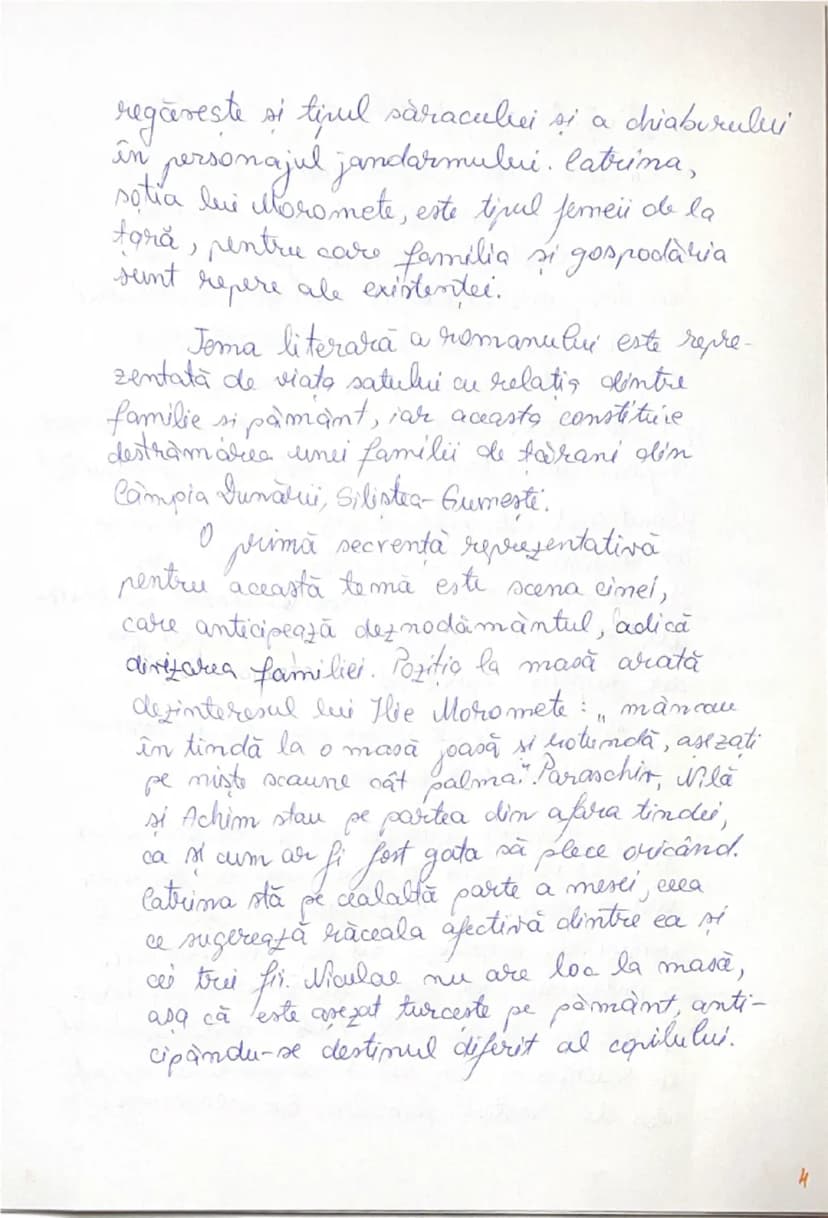 regăsește și tipul săracului și a chiaburului
în personajul jandarmului. Catrina,
soția lui Moromete, este tipul femeii de la
țară, pentru care familia și gospodăria
sunt repere ale existenței.
Tema literară a romanului este repre-
zentată de viața satului cu relația dintre
familie și pământ, iar aceasta constituie
destrămarea unei familii de țărani din
Câmpia Dunării, Siliștea-Gumești.
O primă secvență reprezentativă
pentru această temă este scena cinei,
care anticipează deznodământul, adică
divizarea familiei. Poziția la masă arată
dezinteresul lui Ilie Moromete: „mâncau
în tindă la o masă joasă și rotundă, așezați
pe niște scaune cât palma." Paraschiv, Nilă
și Achim stau pe partea din afara tindei,
ca și cum ar fi fost gata să plece oricând.
Catrina stă pe cealaltă parte a mesei, ceea
ce sugerează răceala afectivă dintre ea și
cei trei fii. Niculae nu are loc la masă,
așa că este așezat turcește pe pământ, anti-
cipându-se destinul diferit al copilului.
4